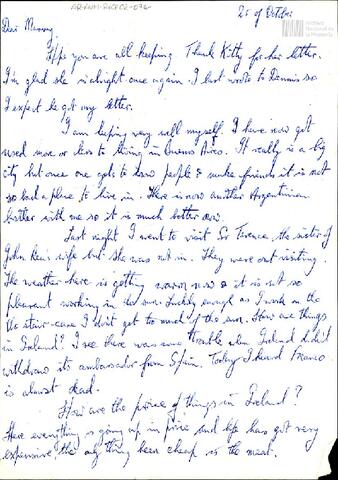 AR-ANM-
25 of October
Archivo
Nacional de
la Memoria
Dear Mammy,
Hope you are all keeping Thank Kitty for her letter.
I'm glad she is alright once again. I last wrote to Dennis so
I expect he got my letter.
I am keeping very well myself. I have now got
used more or less to living in Buenos Aires. It really is a big
city but once one gets to know people & make friends it is not
so bad a place to live in. There is now another Argentinian
brother with me so it is much better now.
Last night I went to visit Sr Terence, the sister of
John wife but she was not in. They were out visiting.
The weather here is getting warm now & it is not so
pleasant working in the sun. Luckily enough as I work on the
the stair-case I don't get too much of the sun. How are things
in Ireland? I see there was some trouble when Ireland didn't
withdraw its ambassador from Spain. Today I heard Franco
is almost dead.
How are the price of things in Ireland?
Here everything is going up in price and has got very
expensive the only thing been cheap is the meat.